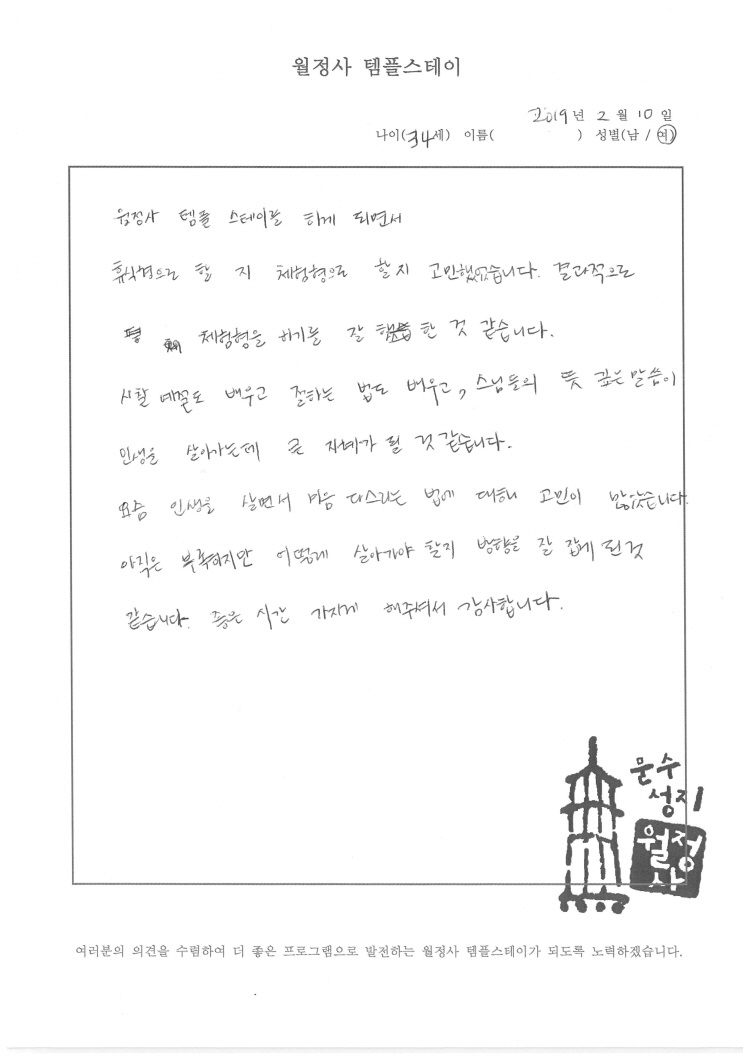 월정사 템플스테이
2019년 2월 10일
나이(34세) 이름( ) 성별(남 / 여)
월정사 템플 스테이를 하게 되면서
휴식형으로 할 지 체험형으로 할지 고민했었습니다. 결과적으로
체험형을 하기를 잘 한 것 같습니다.
사찰 예절도 배우고 절하는 법도 배우고, 스님들의 뜻 깊은 말씀이
인생을 살아가는데 큰 지혜가 될 것 같습니다.
요즘 인생을 살면서 마음 다스리는 법에 대해 고민이 많았습니다.
아직은 부족하지만 어떻게 살아가야 할지 방향을 잘 잡게 된 것
같습니다. 좋은 시간 가지게 해주셔서 감사합니다.
문수
성지
월정
사
여러분의 의견을 수렴하여 더 좋은 프로그램으로 발전하는 월정사 템플스테이가 되도록 노력하겠습니다.